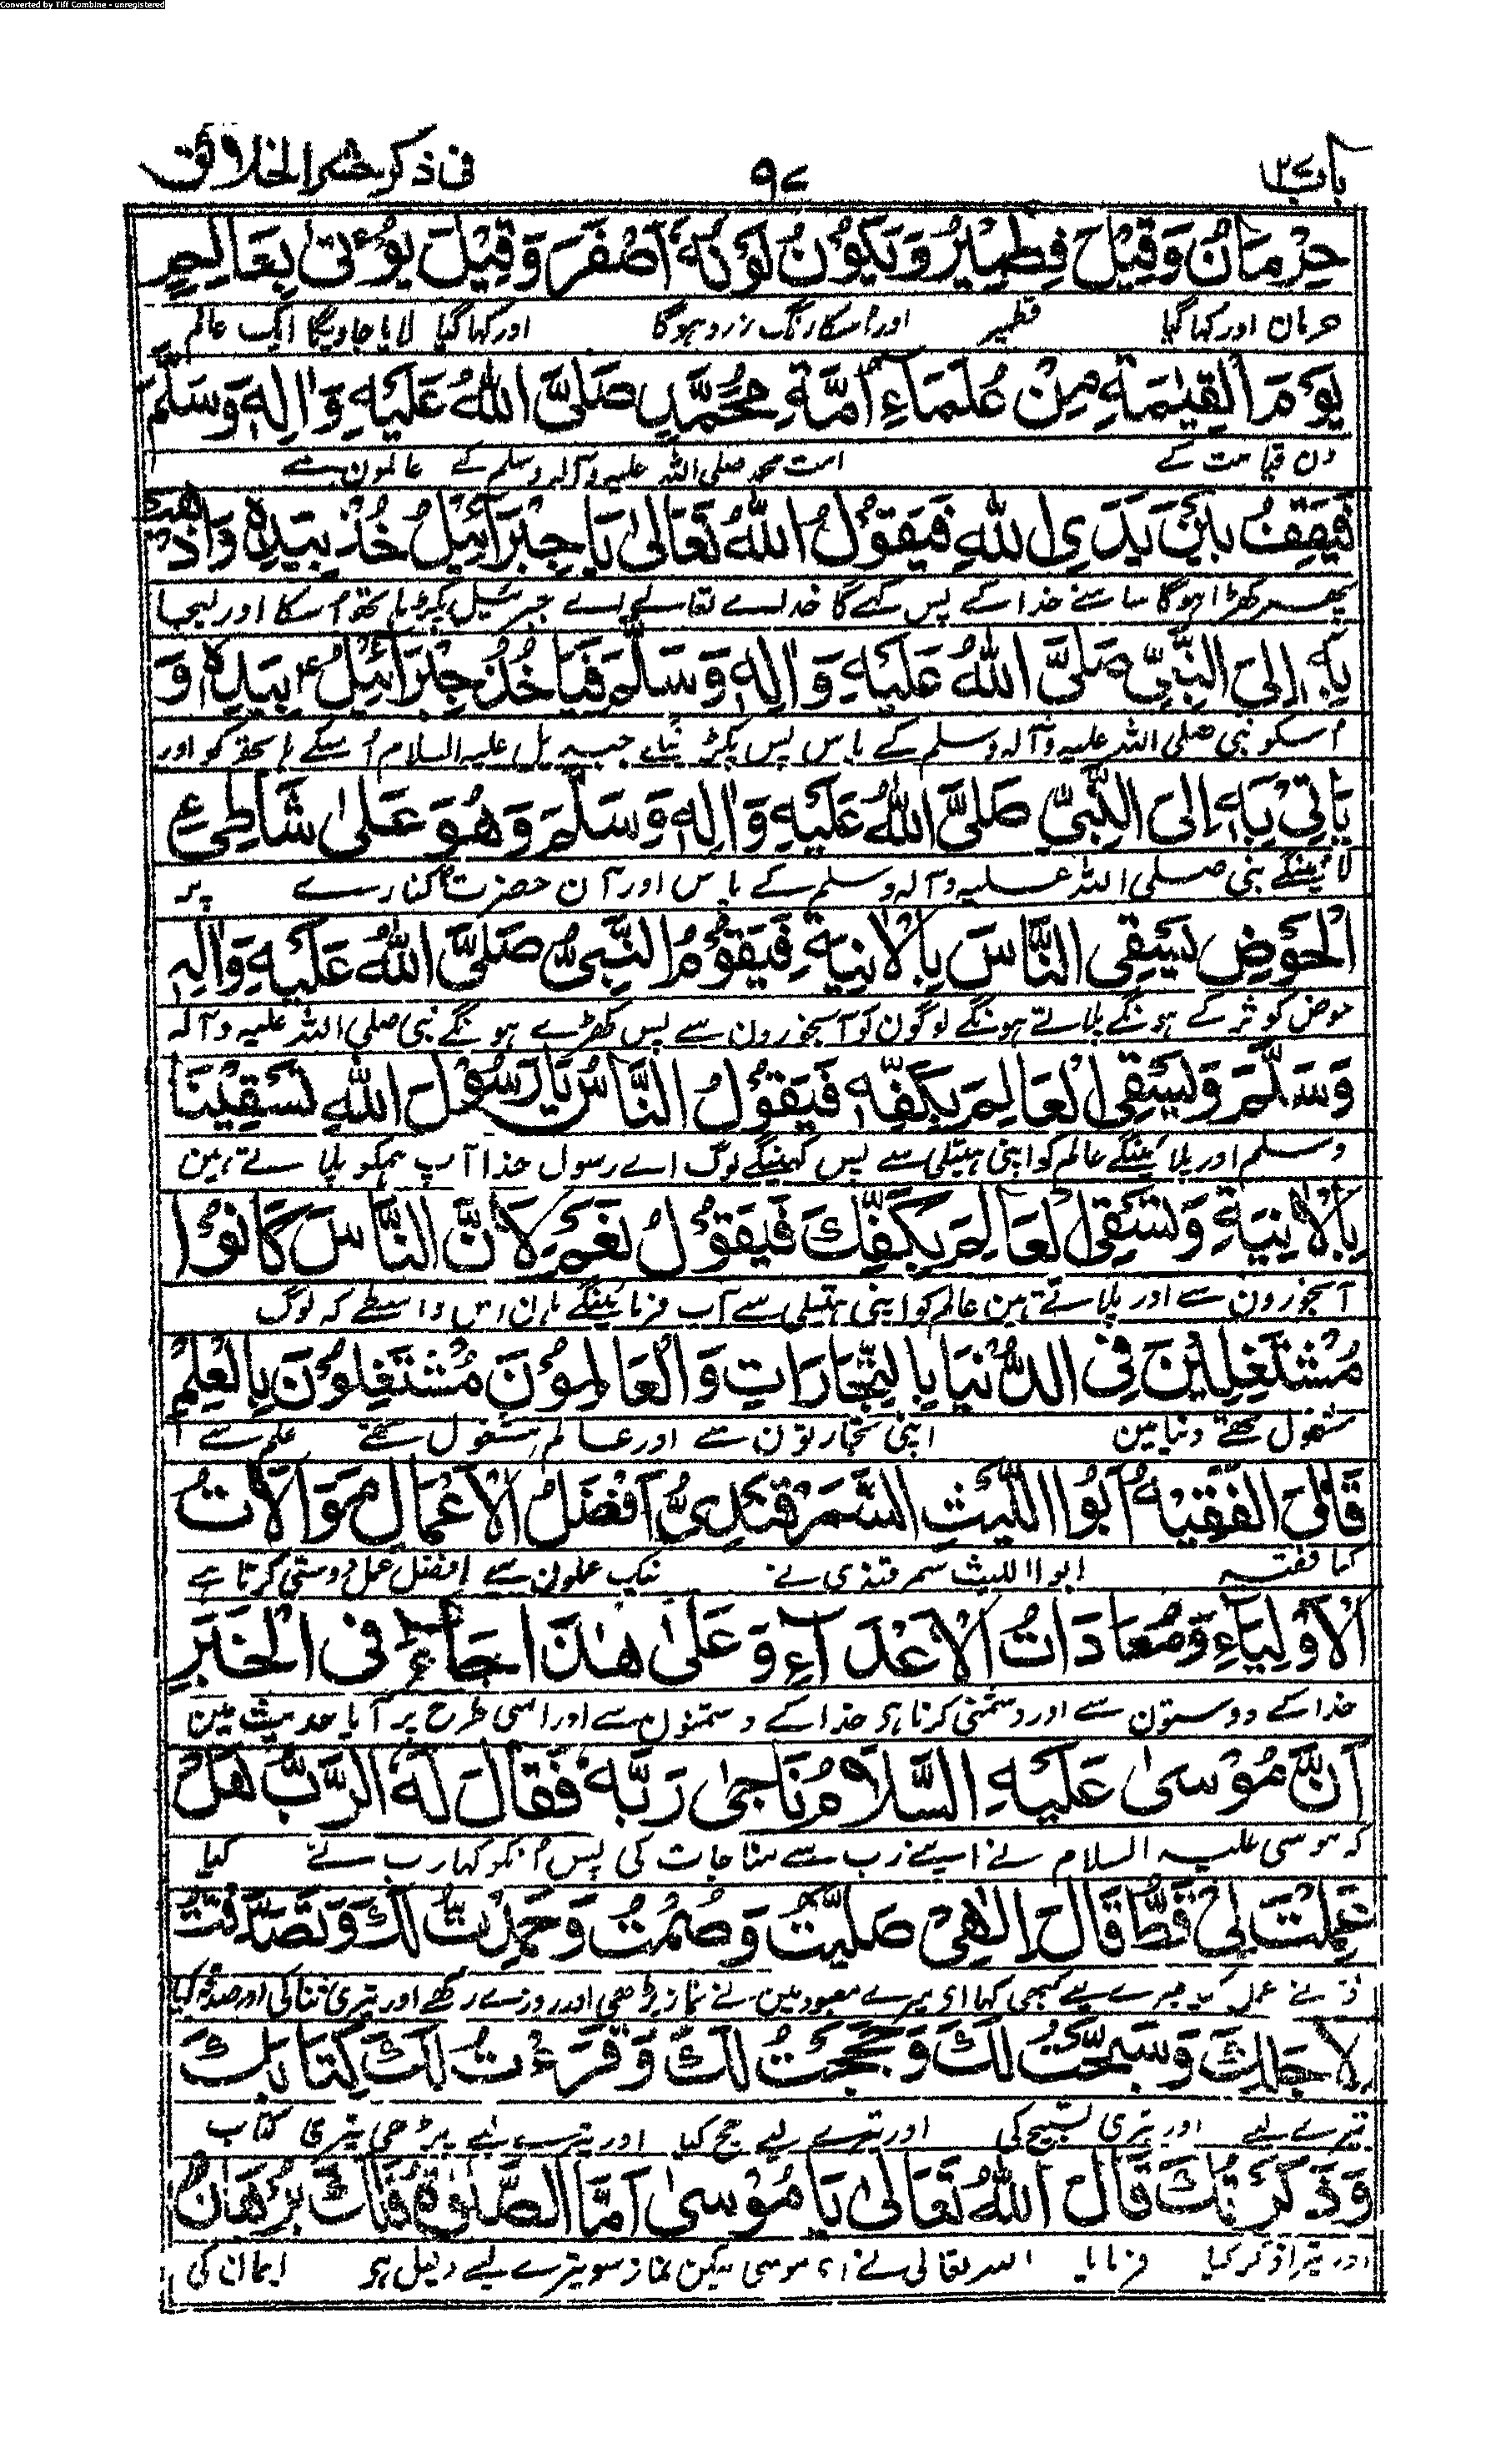 Converted by Tiff Combine - unregistered
باب ۲۷ ۹۷ فی ذکر حشر الخلائق
حِرْمَانُ وَقِيْلَ قِطْمِيْرُ وَيَكُوْنُ لَوْنُهٗ اَصْفَرَ وَقِيْلَ يُوْتٰی بِعَالِمٍ
حرمان اور کہا گیا قطمیر اور اسکا رنگ زرد ہوگا اور کہا گیا لایا جاویگا ایک عالم
يَوْمَ الْقِيٰمَةِ مِنْ عُلَمَاءِ اُمَّةِ مُحَمَّدٍ صَلَّی اللّٰهُ عَلَيْهِ وَاٰلِهٖ وَسَلَّمَ
دن قیامت کے امت محمد صلی اللہ علیہ وآلہ وسلم کے عالمون سے
فَيَقِفُ بَيْنَ يَدَیِ اللّٰهِ فَيَقُوْلُ اللّٰهُ تَعَالٰی يَا جِبْرَائِيْلُ خُذْ بِيَدِهٖ وَاذْهَبْ
پھر کھڑا ہوگا سامنے خدا کے پس کہے گا خداے تعالے اے جبرئیل پکڑ ہاتھ اسکا اور لیجا
بِهٖ اِلَی النَّبِیِّ صَلَّی اللّٰهُ عَلَيْهِ وَاٰلِهٖ وَسَلَّمَ فَيَاخُذُ جِبْرَائِيْلُ ؑ بِيَدِهٖ وَ
اسکو نبی صلی اللہ علیہ وآلہ وسلم کے پاس پس پکڑینگے جبریل علیہ السلام اسکے ہاتھ کو اور
يَاتِیْ بِهٖ اِلَی النَّبِیِّ صَلَّی اللّٰهُ عَلَيْهِ وَاٰلِهٖ وَسَلَّمَ وَهُوَ عَلٰی شَاطِیِٔ
لائینگے نبی صلی اللہ علیہ وآلہ وسلم کے پاس اور آن حضرت کنارے پر
الْحَوْضِ يَسْقِی النَّاسَ بِالْاٰنِيَةِ فَيَقُوْمُ النَّبِیُّ صَلَّی اللّٰهُ عَلَيْهِ وَاٰلِهٖ
حوض کوثر کے ہونگے پلاتے ہونگے لوگون کو آبخورون سے پس کھڑے ہونگے نبی صلی اللہ علیہ وآلہ
وَسَلَّمَ وَيَسْقِی الْعَالِمَ بِكَفِّهٖ فَيَقُوْلُ النَّاسُ يَا رَسُوْلَ اللّٰهِ تَسْقِيْنَا
وسلم اور پلائینگے عالم کو اپنی ہتیلی سے پس کہینگے لوگ اے رسول خدا آپ ہمکو پلاتے ہین
بِالْاٰنِيَةِ وَتَسْقِی الْعَالِمَ بِكَفِّكَ فَيَقُوْلُ نَعَمْ لِاَنَّ النَّاسَ كَانُوْا
آبخورون سے اور پلاتے ہین عالم کو اپنی ہتیلی سے آپ فرمائینگے ہان اس واسطے کہ لوگ
مُشْتَغِلِيْنَ فِی الدُّنْيَا بِالتِّجَارَاتِ وَالْعَالِمُوْنَ مُشْتَغِلُوْنَ بِالْعِلْمِ
مشغول تھے دنیا مین اپنی تجارتون سے اور عالم مشغول تھے علم سے
قَالَ الْفَقِيْهُ اَبُوا اللَّيْثِ السَّمَرْقَنْدِیُّ اَفْضَلُ الْاَعْمَالِ مَوَالَاتُ
کہا فقیہ ابوا اللیث سمرقندی نے نیک عملون سے افضل عمل دوستی کرنا ہے
الْاَوْلِيَاءِ وَمُعَادَاتُ الْاَعْدَآءِ وَعَلٰی هٰذَا جَاءَ فِی الْخَبَرِ
خدا کے دوستون سے اور دشمنی کرنا ہے خدا کے دشمنون سے اور اسی طرح پر آیا حدیث مین
اَنَّ مُوْسٰی عَلَيْهِ السَّلَامُ نَاجٰی رَبَّهٗ فَقَالَ لَهُ الرَّبُّ هَلْ
کہ موسی علیہ السلام نے اپنے رب سے مناجات کی پس انکو کہا رب نے کیا
عَمِلْتَ لِیْ قَطُّ قَالَ اِلٰهِیْ صَلَّيْتُ وَصُمْتُ وَحَمِدْتُ لَكَ وَتَصَدَّقْتُ
تو نے عمل کیا میرے لیے کبھی کہا ای میرے معبود مین نے نماز پڑھی اور روزے رکھے اور تیری ثنا کی اور صدقہ کیا
لِاَجْلِكَ وَسَبَّحْتُ لَكَ وَحَجَجْتُ لَكَ وَقَرَءْتُ لَكَ كِتَابَكَ
تیرے لیے اور تیری تسبیح کی اور تیرے لیے حج کیا اور تیرے لیے پڑھی تیری کتاب
وَذَكَرْتُكَ قَالَ اللّٰهُ تَعَالٰی يَا مُوْسٰی اَمَّا الصَّلٰوةُ فَلَكَ بُرْهَانٌ
اور تیرا ذکر کیا فرمایا اللہ تعالی نے ای موسی لیکن نماز سو تیرے لیے دلیل ہو ایمان کی